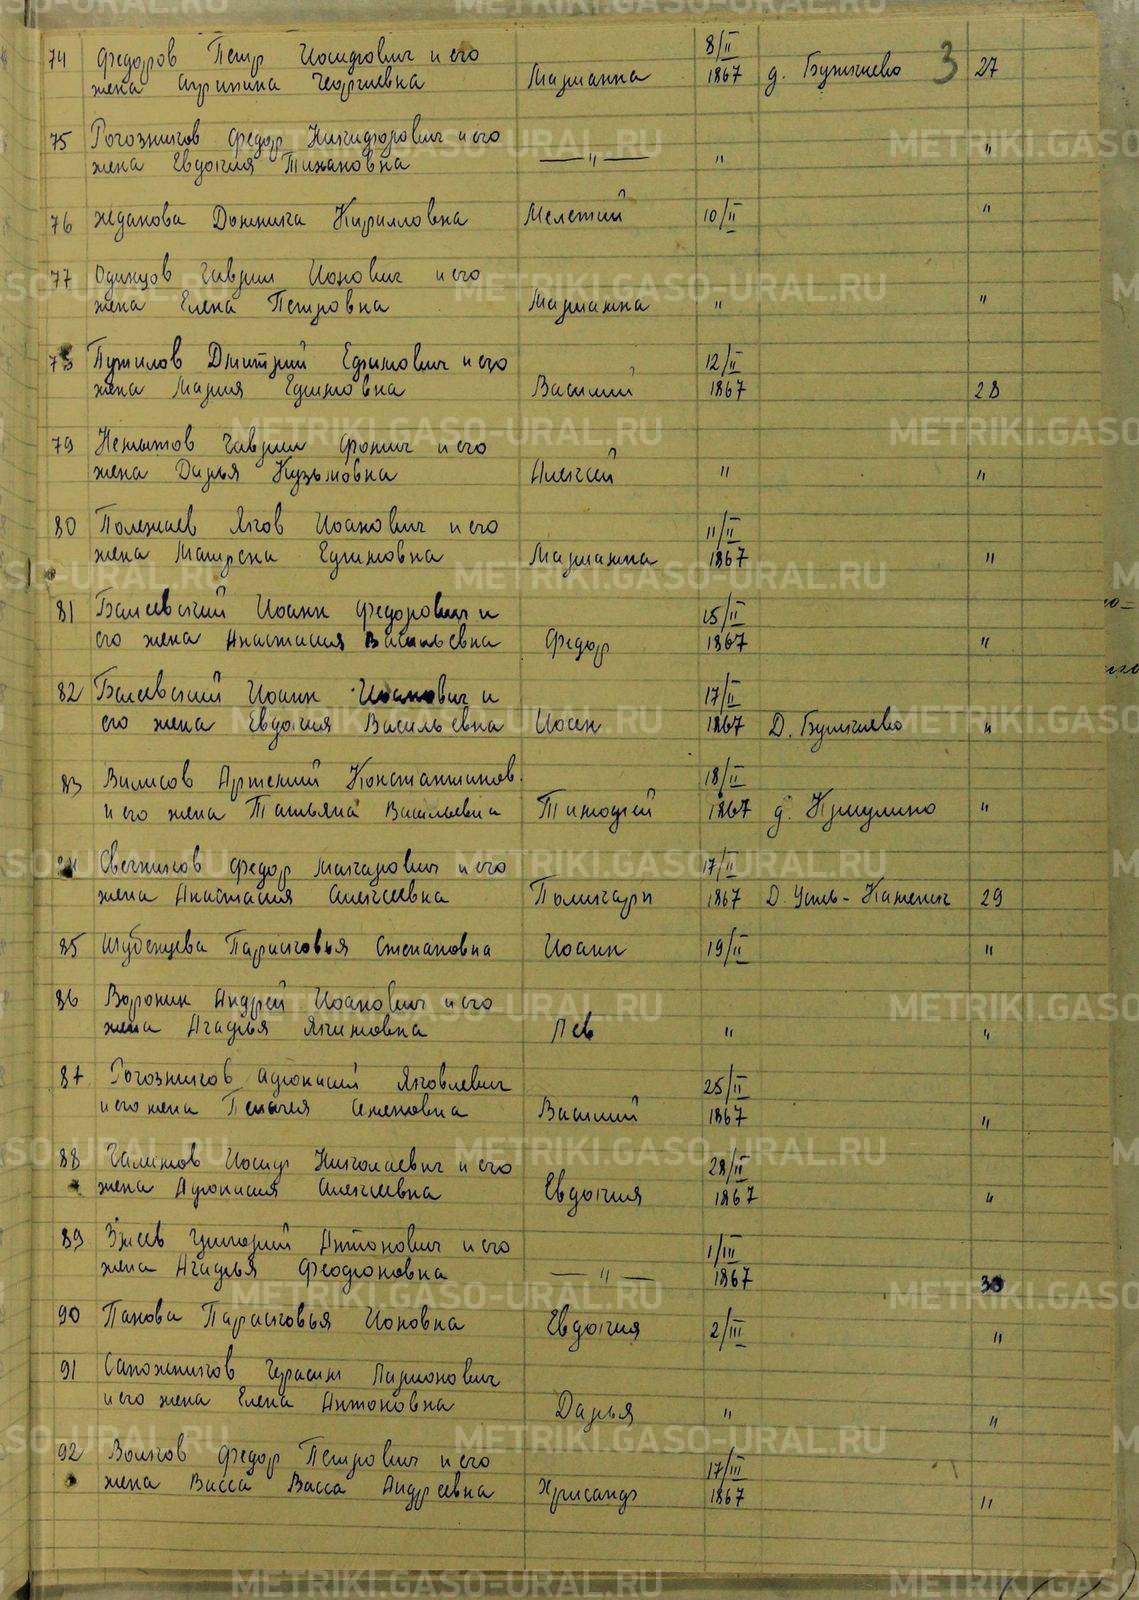 METRIKI.GASO-URAL.RU
3
74 Федоров Петр Иосифович и его 8/II
жена Агрипина Георгиевна Марианна 1867 д. Бунычево 27
75 Рогозников Федор Никифорович и его
жена Евдокия Тихановна —"— " "
76 Жданова Домника Кирилловна Мелетий 10/II "
77 Одинцов Гаврил Ионович и его
жена Елена Петровна Марианна " "
78 Пужилов Дмитрий Ефимович и его 12/II
жена Мария Ефимовна Василий 1867 28
79 Немытов Гаврил Фомич и его
жена Дарья Кузьмовна Алексей " "
80 Полежаев Яков Иоанович и его 11/II
жена Матрена Ефимовна Марианна 1867 "
81 Балевский Иоанн Федорович и 15/II
его жена Анастасия Васильевна Федор 1867 "
82 Балевский Иоанн Иоанович и 17/II
его жена Евдокия Васильевна Иоан 1867 Д. Бунычево "
83 Вилисов Артемий Константинов. 18/II
и его жена Татьяна Васильевна Тимофей 1867 д. Крмулино "
84 Свечников Федор Макарович и его 17/II
жена Анастасия Алексеевна Поликарп 1867 Д. Усть-Каменка 29
85 Шубенцева Парасковья Степановна Иоанн 19/II "
86 Воронин Андрей Иоанович и его
жена Агафья Якимовна Лев " "
87 Рогозников Афонасий Яковлевич 25/II
и его жена Пелагея Семеновна Василий 1867 "
88 Галямов Иосиф Николаевич и его 28/II
жена Афонасия Алексеевна Евдокия 1867 "
89 Зуев Григорий Антонович и его 1/III
жена Агафья Феофоновна —"— 1867 30
90 Панова Парасковья Ионовна Евдокия 2/III "
91 Сапожников Герасим Ларионович
и его жена Елена Антоновна Дарья " "
92 Волков Федор Петрович и его 17/III
жена Васса Васса Андреевна Хрисанф 1867 "